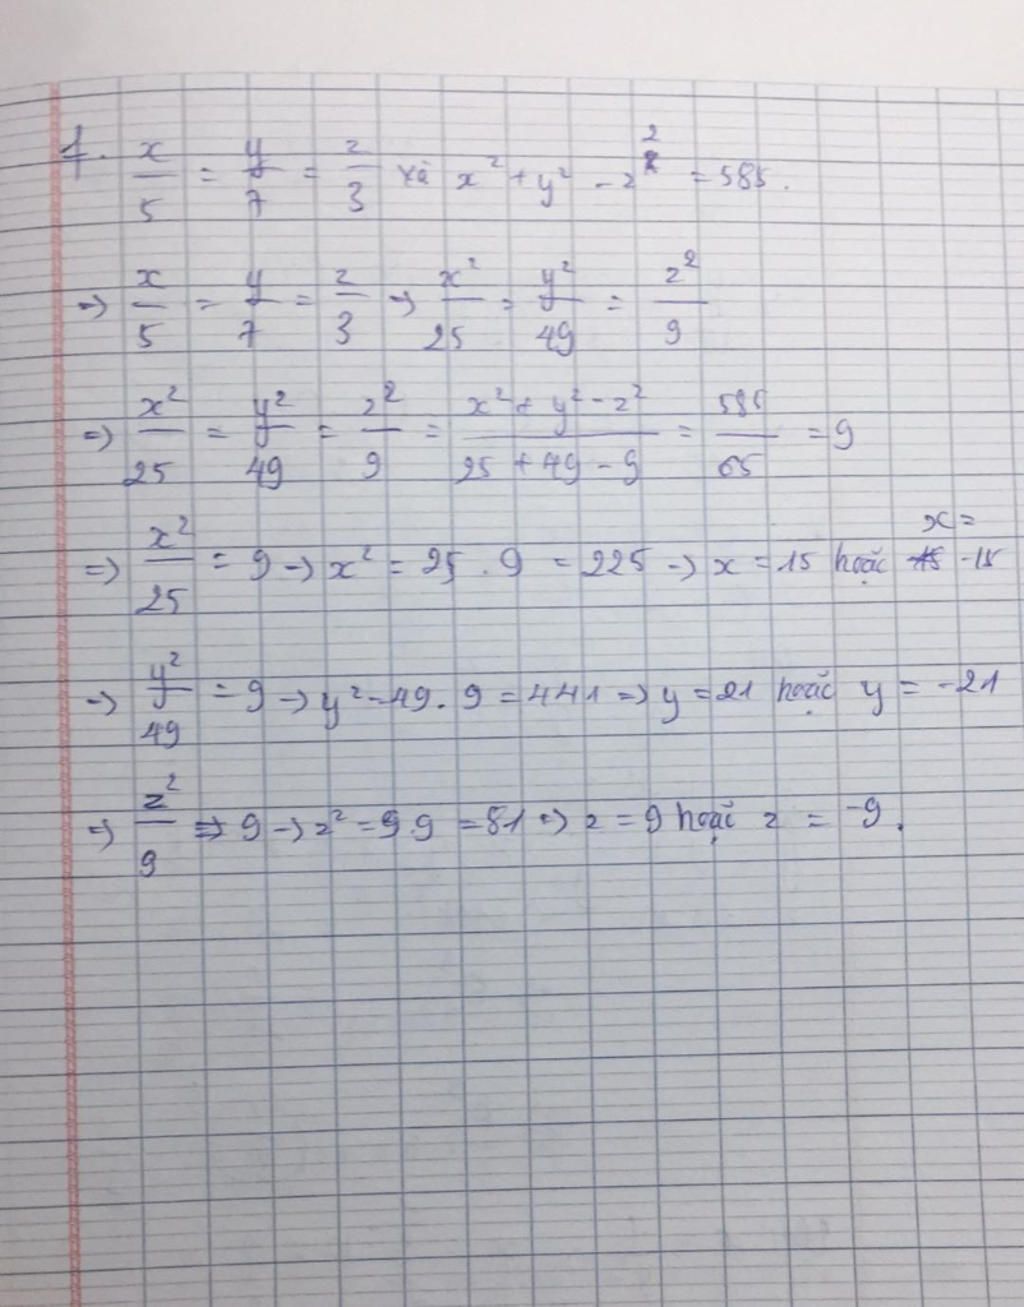 1. x/5 = y/7 = z/3 và x² + y² - z² = 585.
=> x/5 = y/7 = z/3 -> x²/25 = y²/49 = z²/9
=> x²/25 = y²/49 = z²/9 = (x² + y² - z²)/(25 + 49 - 9) = 585/65 = 9
x =
=> x²/25 = 9 -> x² = 25 . 9 = 225 -> x = 15 hoặc -15
=> y²/49 = 9 -> y² = 49 . 9 = 441 => y = 21 hoặc y = -21
=> z²/9 = 9 -> z² = 9.9 = 81 => z = 9 hoặc z = -9.